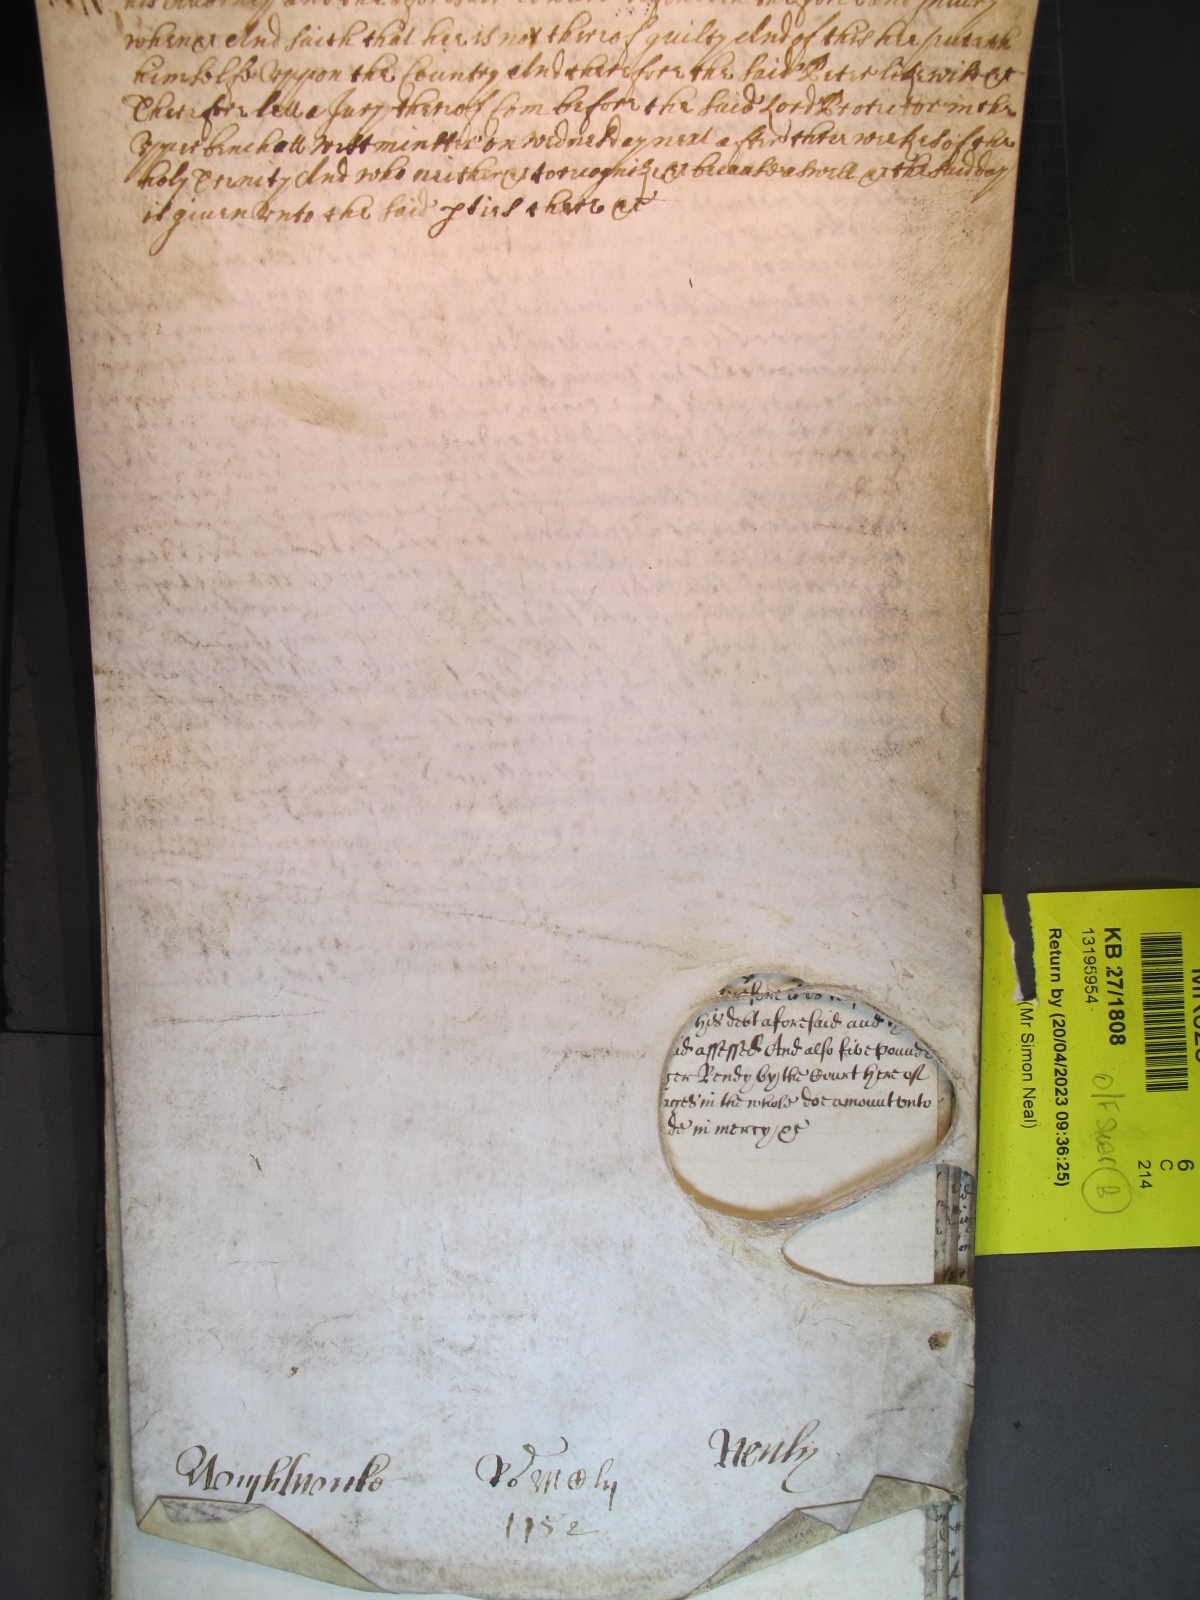 his Attorney and the aforesaid
when &c And saith that hee is not thereof guilty And of this hee putteth
himselfe uppon the Country And therefore the said Peter likewise &c
Therefore lett a Jury thereof Com before the said Lord Protector in the
upper bench att Westminster on Wednesday next after three weekes of the
holy Trinity And who neither &c to recognize &c because aswell &c the said day
is given unto the said pties there &c
his debt aforesaid and
id assessed And also five pounds
ger Pendy by the Court here of
ages in the whole doe amount unto
de in mercy &c
1152
KB 27/1808
13195954
Return by (20/04/2023 09:36:25)
(Mr Simon Neal)
6
C
214
B